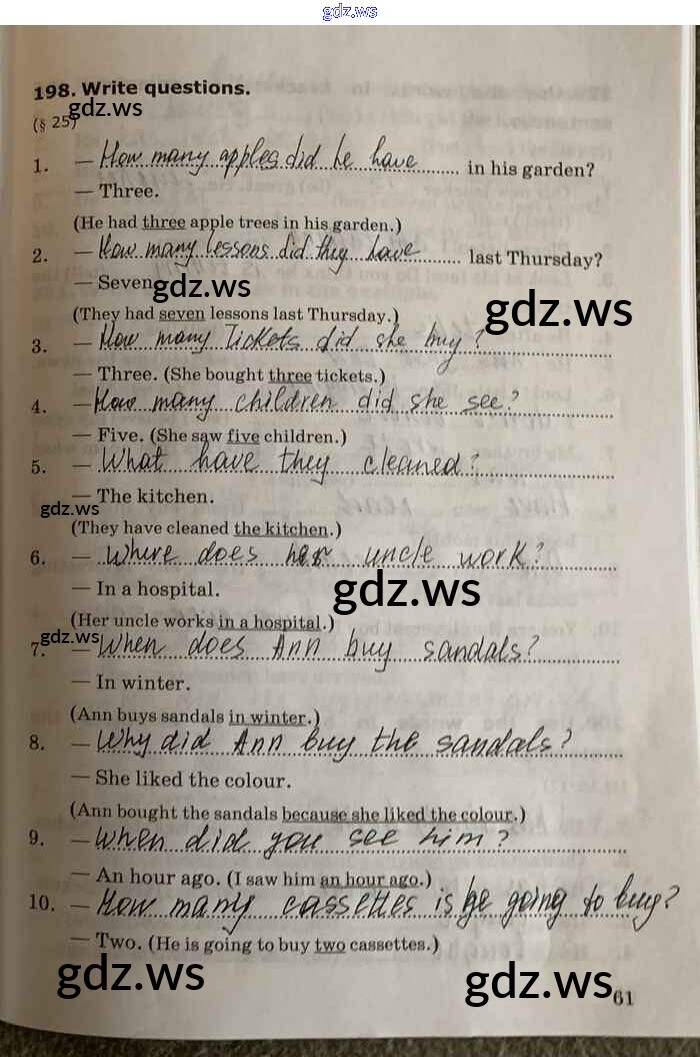 gdz.ws
198. Write questions.
gdz.ws
(§ 25)
1. — How many apples did he have in his garden?
— Three.
(He had three apple trees in his garden.)
2. — How many lessons did they have last Thursday?
— Seven.
gdz.ws
gdz.ws
(They had seven lessons last Thursday.)
3. — How many tickets did she buy?
— Three. (She bought three tickets.)
4. — How many children did she see?
— Five. (She saw five children.)
5. — What have they cleaned?
— The kitchen.
gdz.ws
(They have cleaned the kitchen.)
6. — Where does her uncle work?
— In a hospital.
gdz.ws
(Her uncle works in a hospital.)
gdz.ws
7. — When does Ann buy sandals?
— In winter.
(Ann buys sandals in winter.)
8. — Why did Ann buy the sandals?
— She liked the colour.
(Ann bought the sandals because she liked the colour.)
9. — When did you see him?
— An hour ago. (I saw him an hour ago.)
10. — How many cassettes is he going to buy?
— Two. (He is going to buy two cassettes.)
gdz.ws
gdz.ws
61